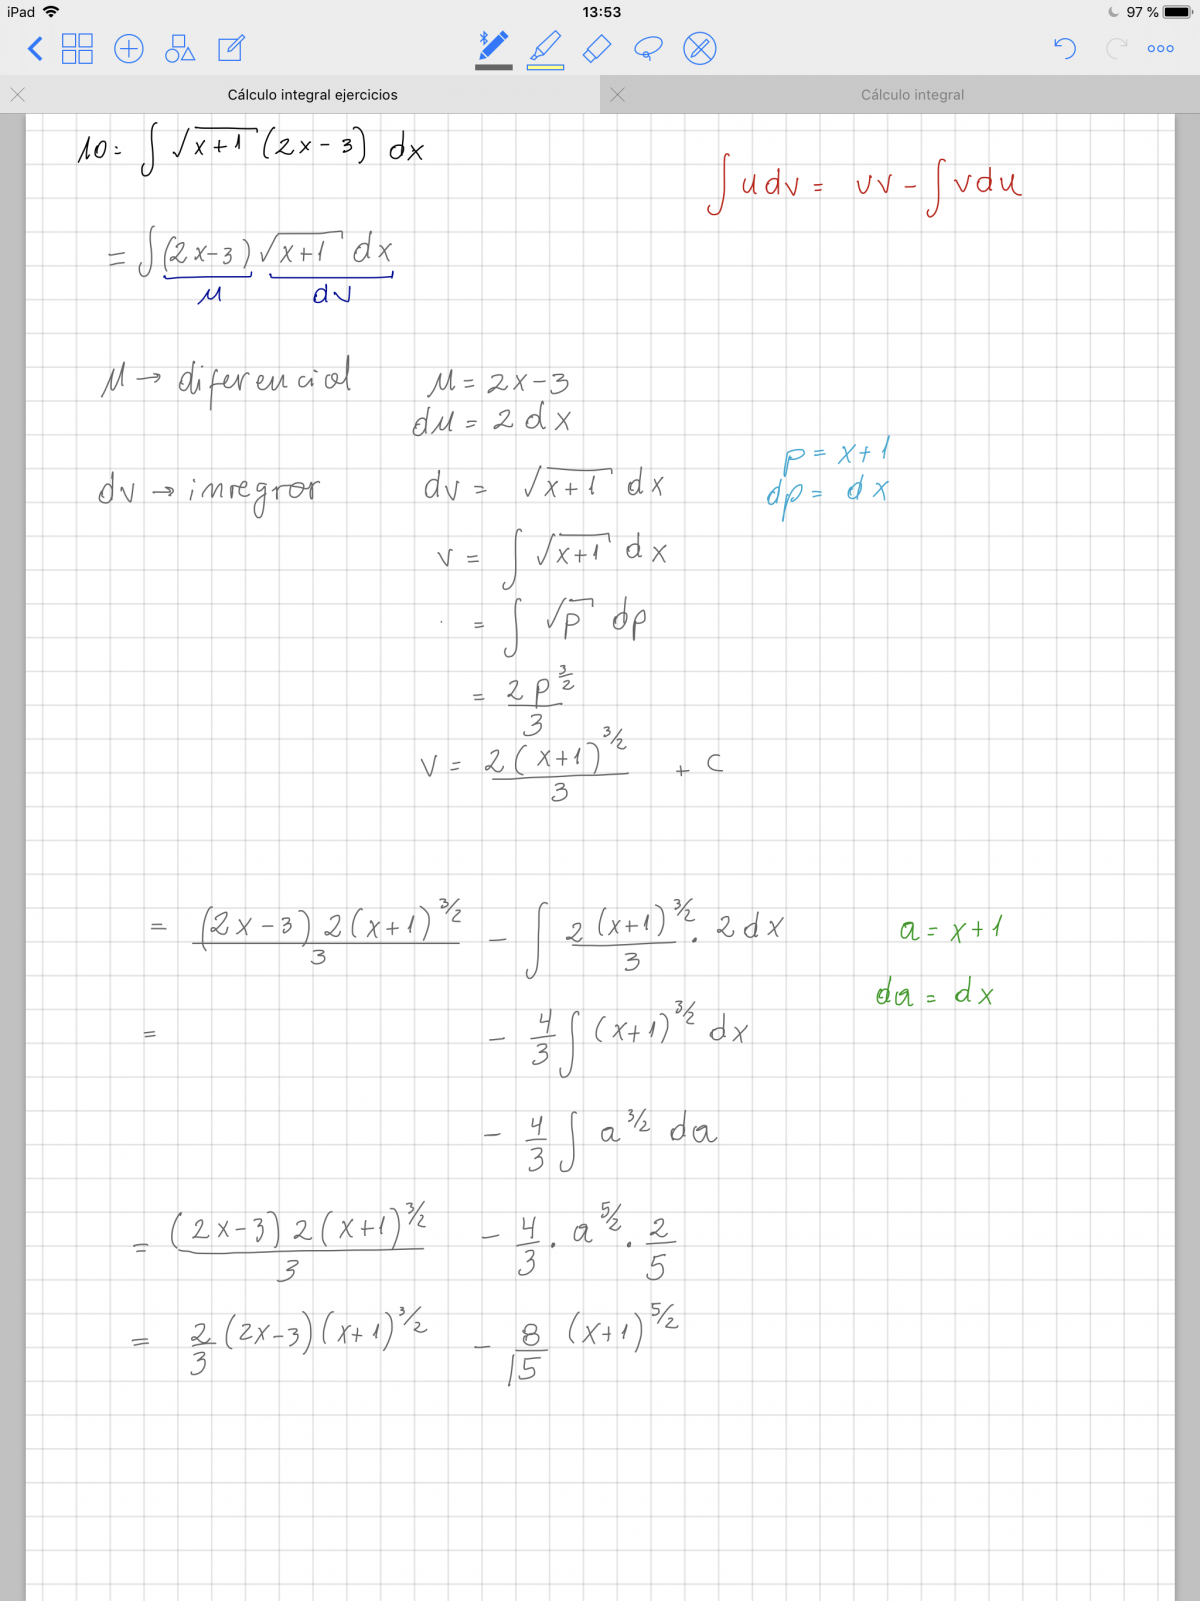 iPad 13:53 97 %
Cálculo integral ejercicios Cálculo integral
10: ∫ √(x+1) (2x-3) dx
∫ u dv = uv - ∫ v du
= ∫ (2x-3) √(x+1) dx
u dv
u → diferencial u = 2x-3
du = 2 dx
p = x+1
dp = dx
dv → inregrar dv = √(x+1) dx
v = ∫ √(x+1) dx
= ∫ √p dp
= 2p^(3/2) / 3
v = 2(x+1)^(3/2) / 3 + C
= (2x-3) 2(x+1)^(3/2) / 3 - ∫ 2(x+1)^(3/2) / 3 . 2 dx a = x+1
da = dx
= - 4/3 ∫ (x+1)^(3/2) dx
- 4/3 ∫ a^(3/2) da
= (2x-3) 2(x+1)^(3/2) / 3 - 4/3 . a^(5/2) . 2/5
= 2/3 (2x-3)(x+1)^(3/2) - 8/15 (x+1)^(5/2)